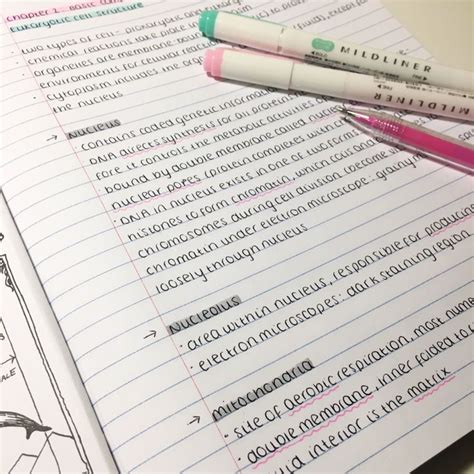 chapter 2: Basic
Eukaryotic cell structure
· two types of cell - prokaryotic and
· chemical reactions take place in fluids, except for
· organelles are membrane-bound
environments for cellular reactions
· cytoplasm includes the
the nucleus
→ Nucleus
· contains coded genetic information
· DNA directs synthesis for all proteins
fore it controls the metabolic activities of
· bound by double membrane called
nuclear pores (protein complexes with a
· DNA in nucleus exists in one of two forms
histones to form chromatin, which coils and
chromosomes during cell division (become visible
· chromatin under electron microscope: grainy
loosely through nucleus
→ Nucleolus
· area within nucleus, responsible for producing
· electron microscopes: dark staining region
→ Mitochondria
· site of aerobic respiration, most
· double membrane, inner folded to
interior is the matrix
MILDLINER
MILDLINER
ALE